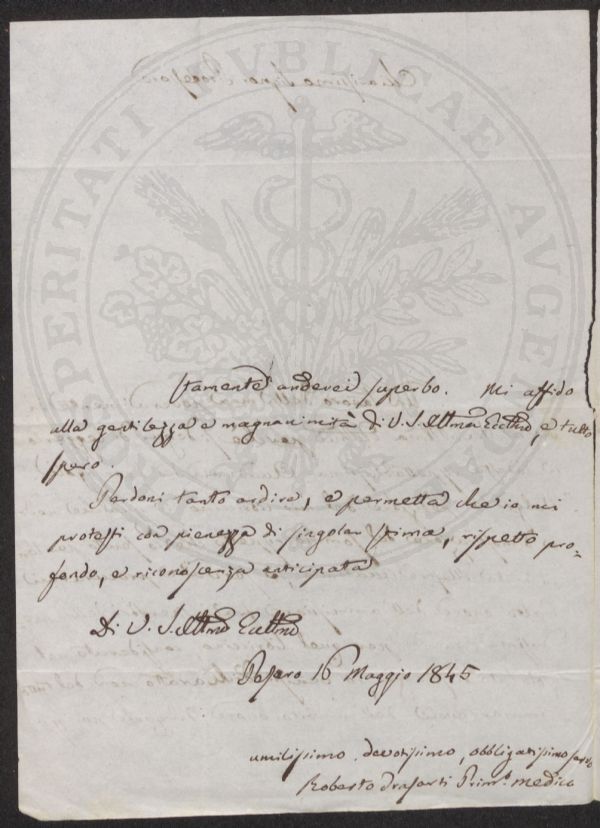 stamente anderei superbo. Mi affido
alla gentilezza e magnanimità di V. S. Illma Ecclma, e tutto
spero.
Perdoni tanto ardire, e permetta che io mi
protesti con pienezza di singolar stima, rispetto pro-
fondo, e riconoscenza anticipata
Di V. S. Illma Ecclma
Pesaro 16 Maggio 1845
umilissimo, devotissimo, obbligatissimo
Roberto Prim.o medico